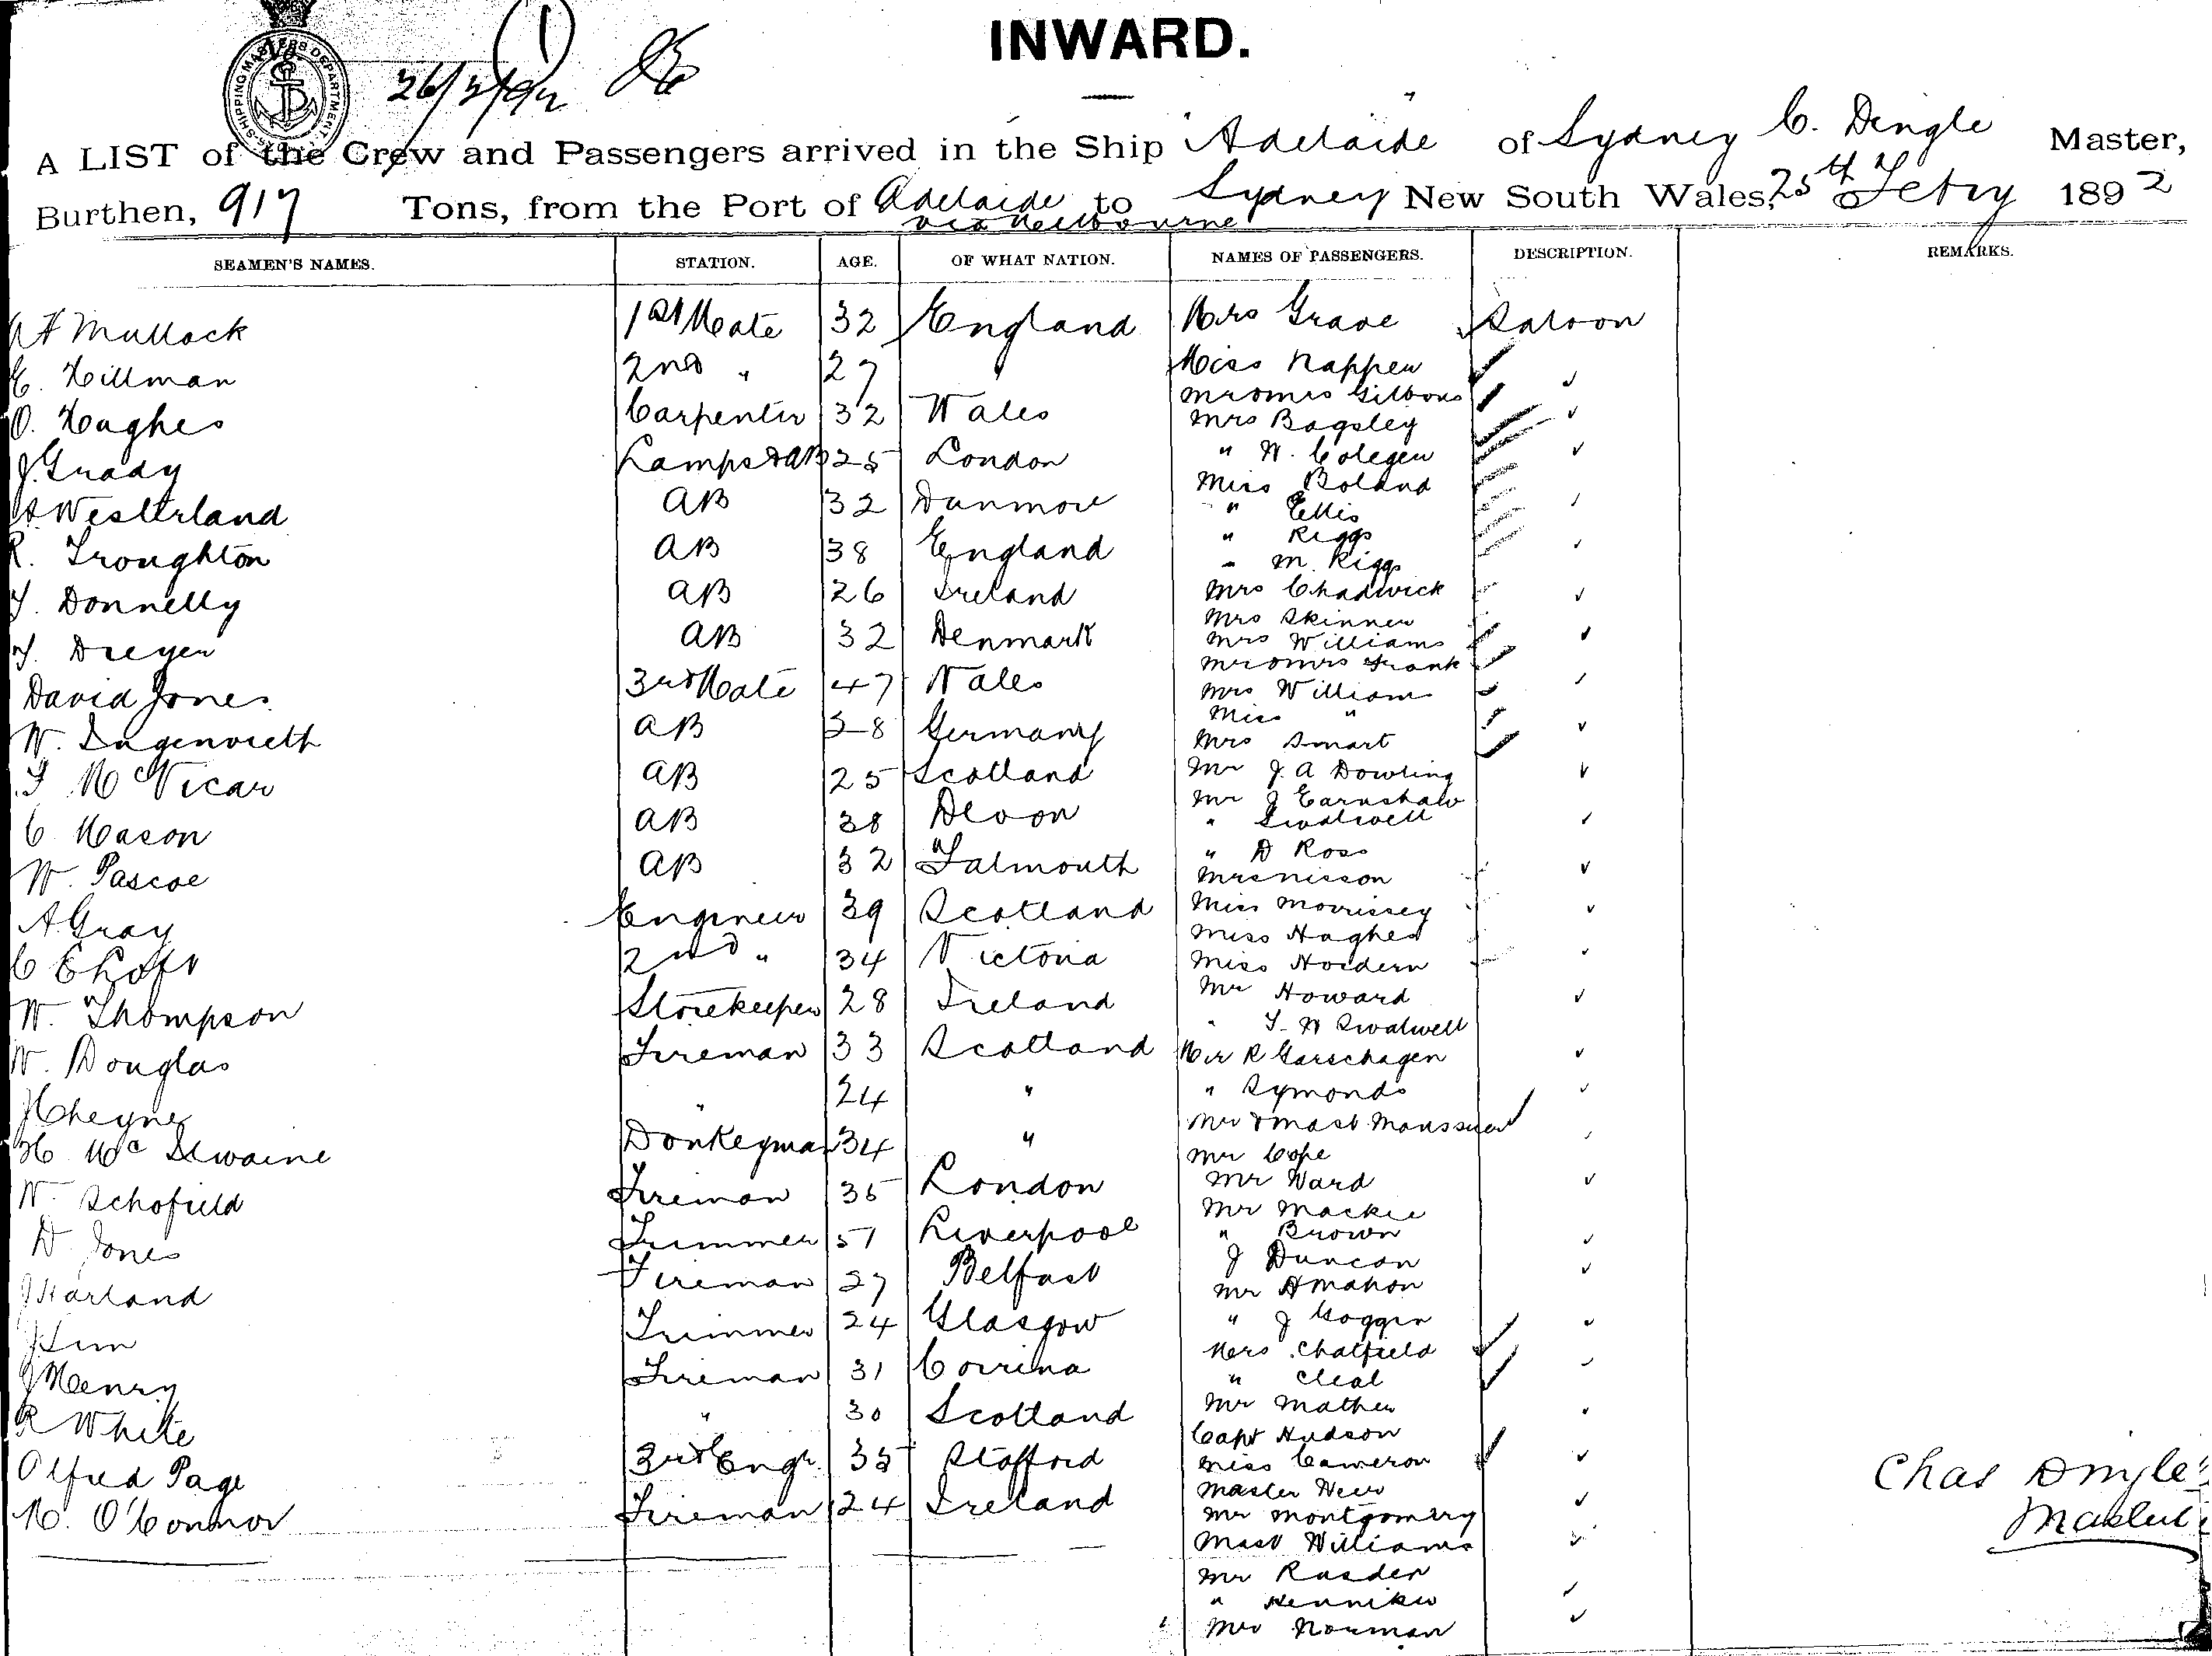 INWARD.
SHIPPING MASTERS DEPARTMENT
26/2/92
A LIST of the Crew and Passengers arrived in the Ship "Adelaide" of Sydney C. Dingle Master,
Burthen, 917 Tons, from the Port of Adelaide to Sydney New South Wales, 25th Febry 1892
via Melbourne
SEAMEN'S NAMES. STATION. AGE. OF WHAT NATION. NAMES OF PASSENGERS. DESCRIPTION. REMARKS.
Mullock 1st Mate 32 England
E. Hillman 2nd " 27
O. Hughes Carpenter 32 Wales
J Grady Lamps & AB 25 London
A Westerland AB 32 Dunmore
R. Troughton AB 38 England
J. Donnelly AB 26 Ireland
J. Dreyer AB 32 Denmark
David Jones 3rd Mate 47 Wales
W. AB 28 Germany
McVicar AB 25 Scotland
C. Mason AB 38 Devon
W. Pascoe AB 32 Falmouth
A Gray Engineer 39 Scotland
C 2nd " 34 Victoria
W. Thompson Storekeeper 28 Ireland
W. Douglas Fireman 33 Scotland
J Cheyne " 24 "
H. McIlwaine Donkeyman 34 "
W. Schofield Fireman 35 London
D. Jones Trimmer 51 Liverpool
J Harland Fireman 27 Belfast
J Sim Trimmer 24 Glasgow
J Henry Fireman 31 Corrina
R White " 30 Scotland
Alfred Page 3rd Engr. 35 Stafford
M. O'Connor Fireman 24 Ireland
Mrs Grave Saloon
Miss Napper
Mr & Mrs Gibbons
Mrs Bagsley
" W. Colegen
Miss Boland
" Ellis
" Riggs
" M. Riggs
Mrs Chadwick
Mrs Skinner
Mrs Williams
Mr & Mrs Frank
Mrs William
Miss "
Mrs Smart
Mr J. A Dowling
Mr J Earnshaw
" Swalwell
" D Ross
Mrs Nisson
Miss Morrissey
Miss Hughes
Miss Hordern
Mr Howard
" T. W Swalwell
Mr R Garschagen
" Symonds
Mr & Mast
Mr Cope
Mr Ward
Mr Mackie
" Brown
J Duncan
Mr A Mahon
" J Goggin
Mrs Chatfield
" Cleal
Mr Mather
Capt Hudson
Miss Cameron
Master
Mr Montgomery
Mast Williams
Mr Rusden
" Henniker
Mr Norman
Chas Dingle
Master